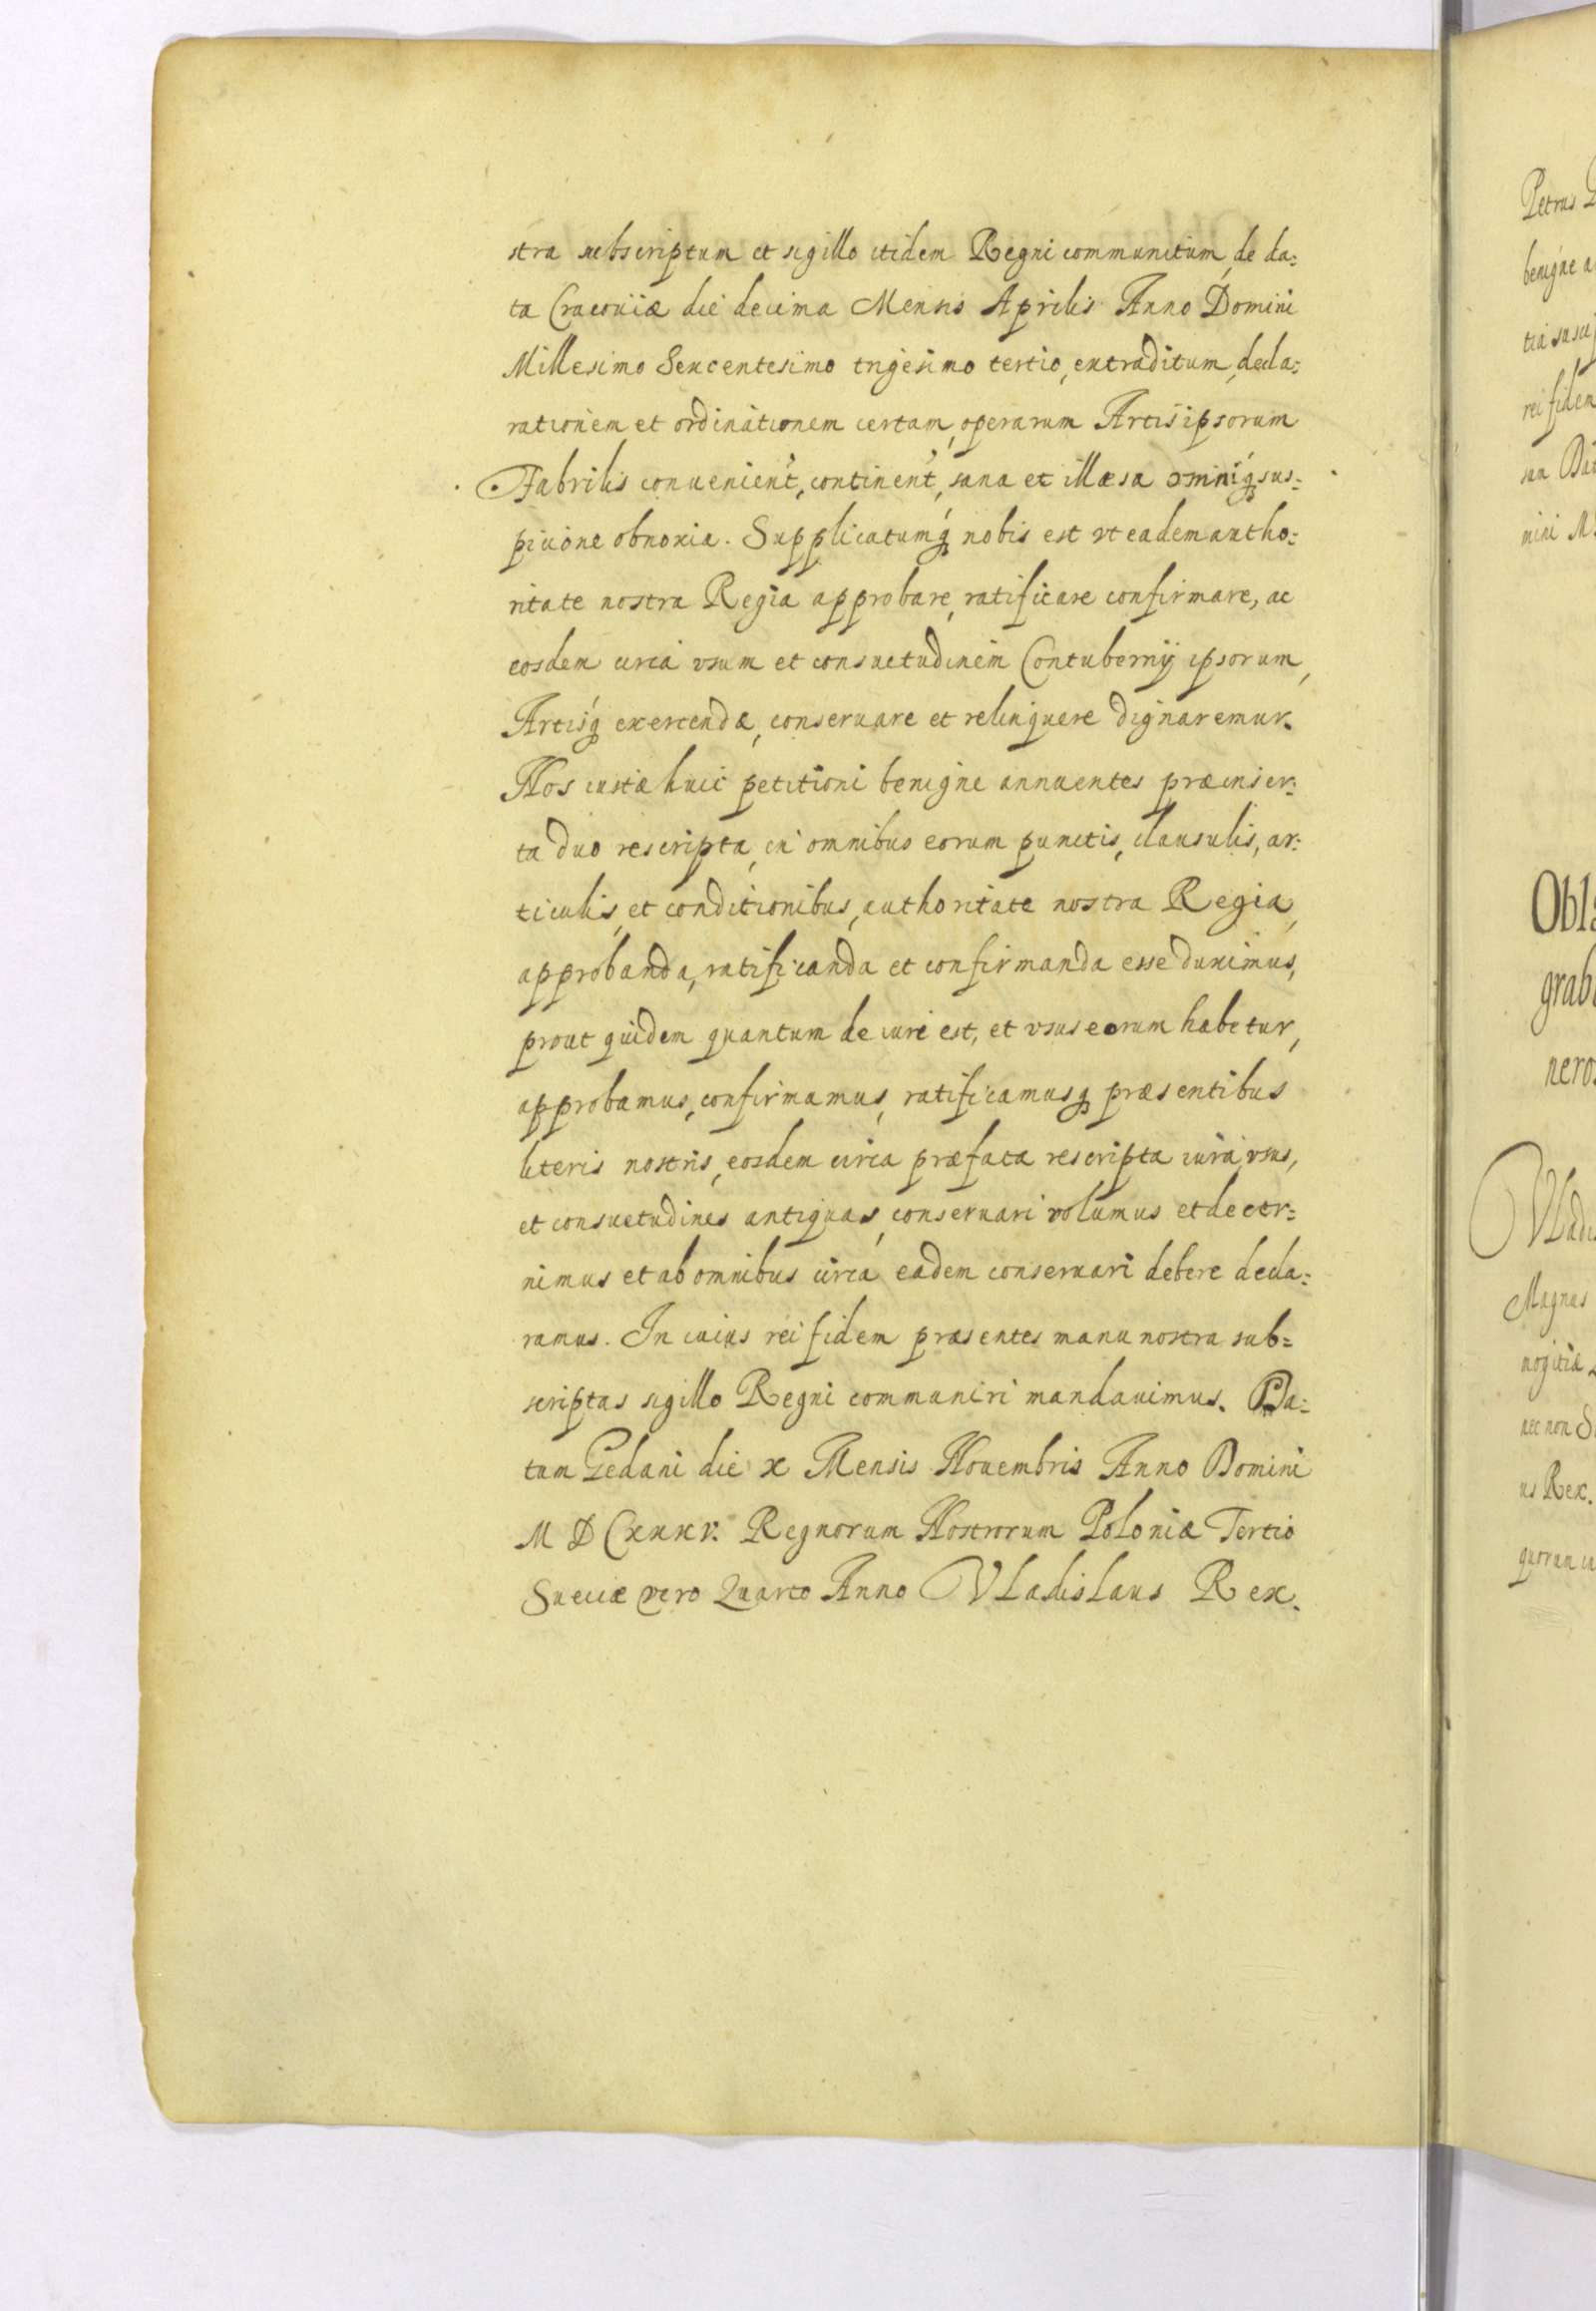 stra subscriptum et sigillo itidem Regni communitum, de da:
ta Cracouiæ die decima Mensis Aprilis Anno Domini
Millesimo Sexcentesimo trigesimo tertio, extraditum, decla:
rationem et ordinationem certam, operarum Artis ipsorum
Fabrilis conuenient, continent, sana et illæsa omniq sus:
picione obnoxia. Supplicatumq nobis est vt eadem autho:
ritate nostra Regia approbare, ratificare confirmare, ac
eosdem circa vsum et consuetudinem Contubernij ipsorum,
Artisq exercendæ, conseruare et relinquere dignaremur.
Nos iustæ huic petitioni benigne annuentes præinser:
ta duo rescripta, in omnibus eorum punctis, clausulis, ar:
ticulis, et conditionibus, authoritate nostra Regia,
approbanda, ratificanda et confirmanda esse duximus,
prout quidem quantum de iure est, et vsus eorum habetur,
approbamus, confirmamus, ratificamusq præsentibus
literis nostris, eosdem circa præfata rescripta iura, vsus,
et consuetudines antiquas, conseruari volumus et decer:
nimus et ab omnibus circa eadem conseruari debere decla:
ramus. In cuius rei fidem præsentes manu nostra sub:
scriptas sigillo Regni communiri mandauimus. Da:
tum Gedani die x Mensis Nouembris Anno Domini
M D Cxxxv. Regnorum Nostrorum Poloniæ Tertio
Sueciæ vero Quarto Anno Vladislaus Rex.
Petrus
benigne a
rei fidem
mini M
Obla
grab
nero
Vladis
Magnus
nogitiæ
nec non S
us Rex.
quorum in